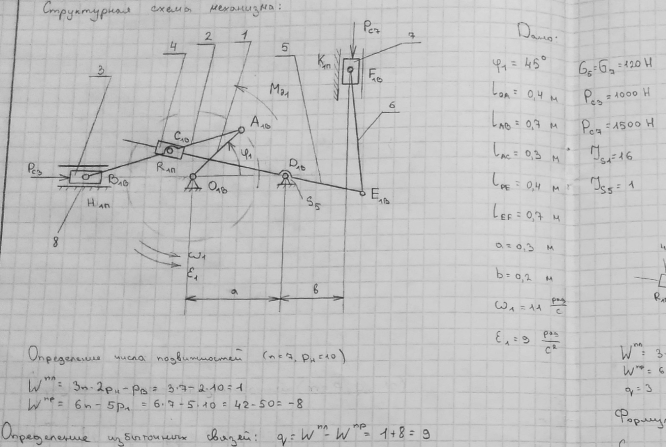 Структурная схема механизма:
Pc7
7
4
2
1
5
K1п
F1В
3
Mд1
6
A1В
C1В
φ1
Pc3
B1В
R1п
O1В
D1В
S5
E1В
H1п
8
ω1
ε1
a
b
Дано:
φ1 = 45°
lOA = 0,4 м
lAB = 0,7 м
lAC = 0,3 м
lDE = 0,4 м
lEF = 0,7 м
a = 0,3 м
b = 0,2 м
ω1 = 11 рад/с
ε1 = 9 рад/с²
G5 = G7 = 120 Н
Pc3 = 1000 Н
Pc7 = 1500 Н
JS1 = 16
JS5 = 1
Определение числа подвижностей (n=7, pн=10)
Wпл = 3n-2pн-pв = 3·7-2·10=1
Wпр = 6n-5p1 = 6·7-5·10 = 42-50=-8
Определение избыточных связей: q= Wпл - Wпр = 1+8 = 9
Wпл = 3
Wпр = 6
q = 3
Формул